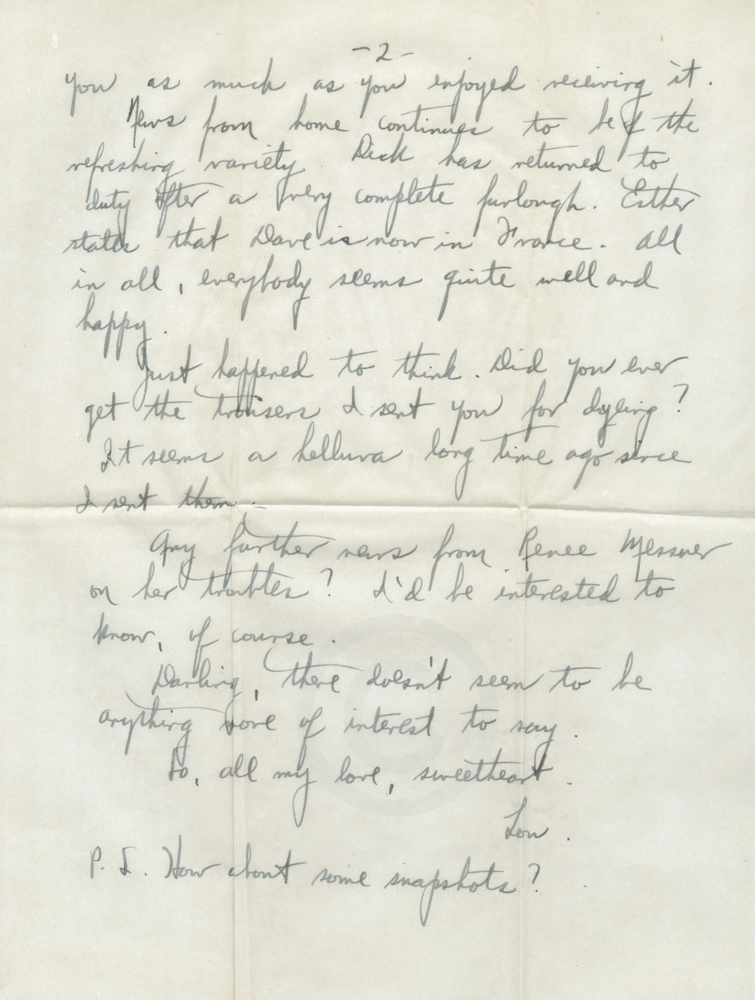 -2-
you as much as you enjoyed receiving it.
News from home continues to be of the
refreshing variety. Dick has returned to
duty after a very complete furlough. Esther
states that Dave is now in France. All
in all, everybody seems quite well and
happy.
Just happened to think. Did you ever
get the trousers I sent you for dyeing?
It seems a helluva long time ago since
I sent them.
Any further news from Renee Messner
on her troubles? I'd be interested to
know, of course.
Darling, there doesn't seem to be
anything more of interest to say.
So, all my love, sweetheart.
Lou.
P.S. How about some snapshots?